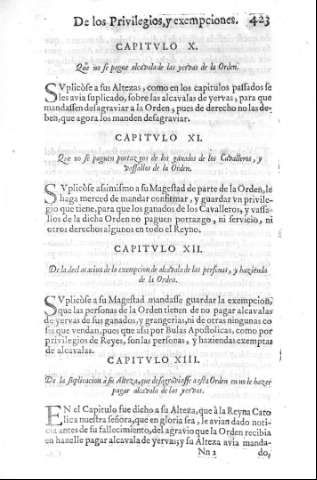 De los Privilegios, y exempciones. 423
CAPITVLO X.
Que no se pague alcavala de las yervas de la Orden.
SVplicòse a sus Altezas, como en los capitulos passados se
les avia suplicado, sobre las alcavalas de yervas, para que
mandassen desagraviar a la Orden, pues de derecho no las de-
ben, que agora los manden desagraviar.
CAPITVLO XI.
Que no se paguen portazgos de los ganados de los Cavalleros, y
vassallos de la Orden.
SVplicòse asimismo a su Magestad de parte de la Orden, le
haga merced de mandar confirmar, y guardar vn privile-
gio que tiene, para que los ganados de los Cavalleros, y vassa-
llos de la dicha Orden no paguen portazgo, ni servicio, ni
otros derechos algunos en todo el Reyno.
CAPITVLO XII.
De la declaracion de la exempcion de alcavala de las personas, y hazienda
de la Orden.
SVplicòse a su Magestad mandasse guardar la exempcion,
que las personas de la Orden tienen de no pagar alcavalas
de yervas de sus ganados, y grangerias, ni de otras ningunas co
sas que vendan, pues que assi por Bulas Apostolicas, como por
privilegios de Reyes, son las personas, y haziendas exemptas
de alcavalas.
CAPITVLO XIII.
De la suplicacion a su Alteza, que desagraviasse a esta Orden en no le hazer
pagar alcavala de las yervas.
EN el Capitulo fue dicho a su Alteza, que à la Reyna Cato
lica nuestra señora, que en gloria sea, le avian dado noti-
cia antes de su fallecimiento, del agravio que la Orden recibia
en hazelle pagar alcavala de yervas; y su Alteza avia manda-
Nn 2 do,